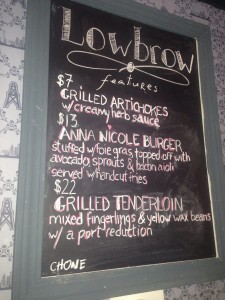 Lowbrow
features
$7
GRILLED ARTICHOKES
w/ creamy herb sauce
$13
ANNA NICOLE BURGER
stuffed w/ foie gras, topped off with
avocado sprouts & bacon aioli
served w/ handcut fries
$22
GRILLED TENDERLOIN
mixed fingerlings & yellow wax beans
w/ a port reduction
CHOWE